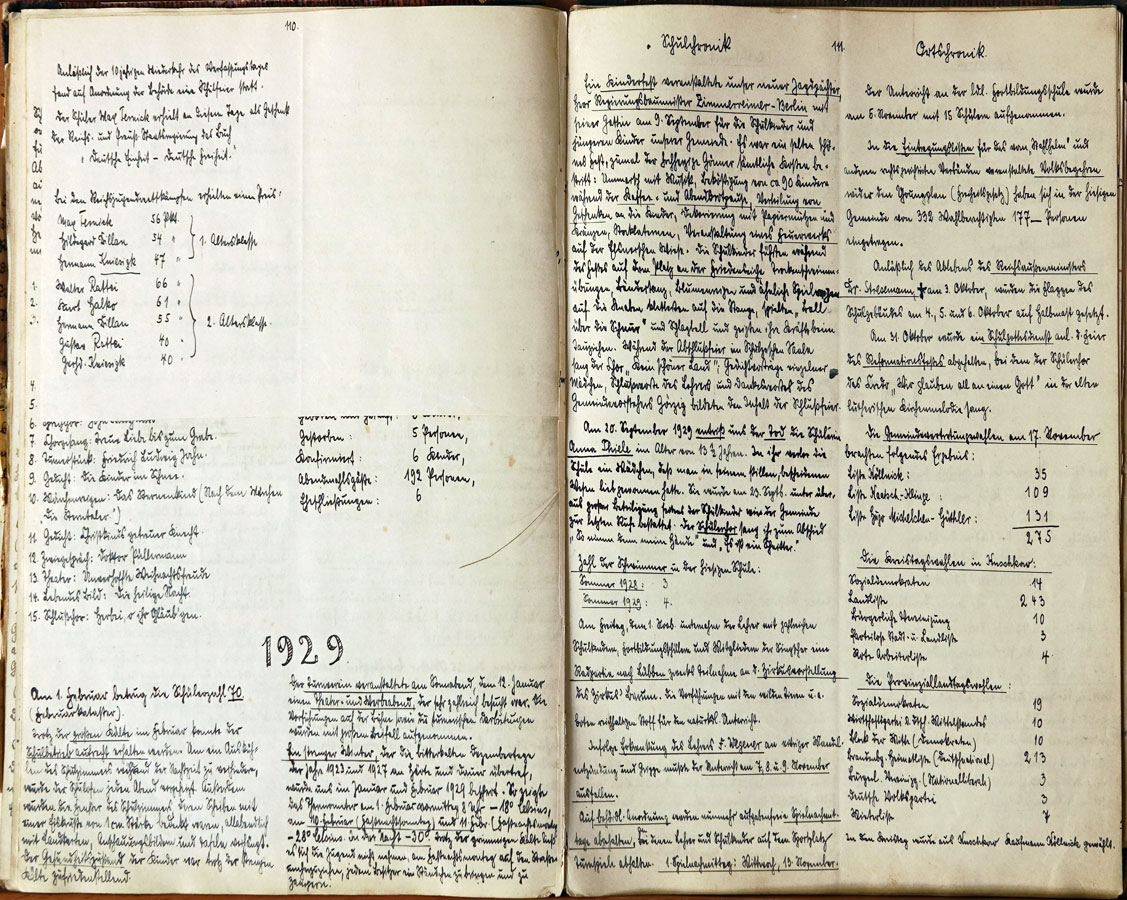 110.
Anläßlich der 10jährigen Wiederkehr des Verfassungstages
fand auf Anordnung der Behörde eine Schulfeier statt.
Der Schüler Max Ternick erhielt an diesem Tage als Geschenk
der Reichs- und Preuß. Staatsregierung das Buch
"Deutsche Einheit - Deutsche Freiheit."
Bei den Reichsjugendwettkämpfen erhielten einen Preis:
Max Ternick 56 Pkt.
Hildegard Lillan 54 "
Hermann 47 "
1. Altersklasse
Walter Rattei 66 "
Kurt Halko 61 "
Hermann Lillan 55 "
Gustav Rattei 40 "
Gerhd. 40 "
2. Altersklasse
1.
2.
3.
4.
5.
6.
7 Chorgesang: Treue Liebe bis zum Grabe.
8. Turnerstück: Friedrich Ludwig Jahn.
9. Gedicht: Die Kinder im Schnee.
10. Märchenreigen: Das Sternenkind (Nach dem Märchen
"Die Sterntaler")
11. Gedicht: Christkinds getreuer Knecht
12. Zwiegespräch: Doktor Püllermann
13. Theater: Unverhoffte Weihnachtsfreude
14. Lebendes Bild: Die heilige Nacht.
15. Schlußchor: Herbei, o ihr Gläubigen.
Gestorben: 5 Personen,
Konfirmiert: 6 Kinder,
Abendmahlsgäste: 192 Personen,
Eheschließungen: 6
1929
Am 1. Februar betrug die Schülerzahl 70
(Februarkataster).
Trotz der großen Kälte im Februar konnte der
Schulbetrieb aufrecht erhalten werden. Um ein Ausküh-
len des Schulzimmers während der Nachtzeit zu verhindern,
wurde der Schulofen jeden Abend nachgeheizt. Außerdem
wurden die Fenster des Schulzimmers, deren Scheiben mit
einer Eiskruste von 1 cm Stärke bedeckt waren, allabendlich
mit Landkarten, Anschauungsbildern und Tafeln verhängt.
Der Gesundheitszustand der Kinder war trotz der strengen
Kälte zufriedenstellend.
Der Turnverein veranstaltete am Sonnabend, dem 12. Januar
einen Theater- und Werbeabend, der sehr zahlreich besucht war. Die
Vorführungen auf der Bühne sowie die turnerischen Darbietungen
wurden mit großem Beifall aufgenommen.
Ein strenger Winter, der die bitterkalten Dezembertage
der Jahre 1923 und 1927 an Härte und Dauer übertraf,
wurde uns im Januar und Februar 1929 beschert. So zeigte
das Thermometer am 1. Februar vormittag 8 Uhr -18° Celsius,
am 10. Februar (Fastnachtsonntag) und 11. Febr. (Fastnachtsmontag)
-28° Celsius. In der Nacht -30°. Trotz der grimmigen Kälte ließ
es sich die Jugend nicht nehmen, am Fastnachtsmontag auf den Straßen
umherzuziehen, jedem Besitzer ein Ständchen zu bringen und zu
zampern.
Schulchronik
111.
Ein Kinderfest veranstaltete unser neuer Jagdpächter,
Herr Regierungsbaumeister Zimmerreimer-Berlin und
seiner Gattin am 9. September für die Schulkinder und
jüngeren Kinder unserer Gemeinde. Es war ein selten schö-
nes Fest, zumal der hochherzige Gönner sämtliche Kosten be-
stritt: Ummarsch mit Musik, Beköstigung von ca 90 Kindern
während der Kaffee- und Abendbrotpause, Verteilung von
Geschenken an die Kinder, Dekorierung mit Papiermützen und
Kränzen, Stocklaternen, Veranstaltung eines Feuerwerks
auf der Wiese. Die Schulkinder führten während
des Festes auf dem Platz an der Friedenseiche Trockenschwimm-
übungen, Bändertanz, Blumenreigen und ähnliche Spiele
auf. Die Knaben kletterten auf die Stange, spielten "Ball
über die Schnur" und Schlagball und zeigten ihre Kräfte beim
Tauziehen. Während der Abschlußfeier im Saale
sang der Chor "Kein schöner Land"; Gedichtvorträge einzelner
Mädchen, Schlußworte des Lehrers und Dankesworte des
Gemeindevorstehers Görzig bildeten den Inhalt der Schlußfeier.
Am 20. September 1929 entriß uns der Tod die Schülerin
Anna Thiele im Alter von 13 1/2 Jahren. In ihr verlor die
Schule ein Mädchen, daß man in seinem stillen, bescheidenen
Wesen lieb gewonnen hatte. Sie wurde am 23. Septb. unter über-
aus großer Beteiligung seitens der Schulkinder und der Gemeinde
zur letzten Ruhe bestattet. Der Schülerchor sang ihr zum Abschied
"So nimm denn meine Hände" und "Es ist ein Schnitter."
Zahl der Schwimmer in der hiesigen Schule:
Sommer 1928: 3
Sommer 1929: 4.
Am Freitag, dem 1. Novb. unternahm der Lehrer mit zahlreichen
Schulkindern, Fortbildungsschülern und Mitgliedern der eine
Radpartie nach Lübben zwecks Teilnahme an d. Zirkusvorstellung
des Zirkus "Barum. Die Vorführungen mit den wilden Tieren u.a.
boten reichhaltigen Stoff für den naturkdl. Unterricht.
Infolge Erkrankung des Lehrers F. an eitriger Mandel-
entzündung und Grippe mußte der Unterricht am 7., 8. u. 9. November
ausfallen.
Auf behördl. Anordnung werden nunmehr aufgabenfreie Spielnachmit-
tage abgehalten, bei denen Lehrer und Schulkinder auf dem Sportplatz
Turnspiele abhalten. 1. Spielnachmittag: Mittwoch, 13. November.
Ortschronik
Der Unterricht an der ldl. Fortbildungsschule wurde
am 5. November mit 15 Schülern aufgenommen.
In die Eintragungslisten für das vom "Stahlhelm" und
anderen rechtsgerichteten Verbänden veranstaltete Volksbegehren
wider den Youngplan (Freiheitsgesetz) haben sich in der hiesigen
Gemeinde von 332 Wahlberechtigten 177 Personen
eingetragen.
Anläßlich des Ablebens des Reichsaussenministers
Dr. Stresemann, † am 3. Oktober, wurden die Flaggen des
Schulgebäudes am 4., 5. und 6. Oktober auf Halbmast gesetzt.
Am 31. Oktober wurde ein Schulgottesdienst anl. d. Feier
des Reformationsfestes abgehalten, bei dem der Schülerchor
das Lied "Wir glauben all an einen Gott" in der alten
lutherischen Kirchenmelodie sang.
Die Gemeindevertretungswahlen am 17. November
brachten folgendes Ergebnis:
Liste Köllnick: 35
Liste 109
Liste 131
275
Die Kreistagswahlen in
Sozialdemokraten 14
Landliste 243
Bürgerliche Vereinigung 10
Parteilose Stadt- u. Landliste 3
Rote Arbeiterliste 4
Die Provinziallandtagswahlen:
Sozialdemokraten 19
Wirtschaftspartei d. dtsch. Mittelstandes 10
Block der Mitte (Demokraten) 10
Brandenbg. Heimatliste (Deutschnational) 213
Bürgerl. Vereinigg. (Nationalliberal) 3
Deutsche Volkspartei 3
7
In den Kreistag wurde aus Kaufmann Köllnick gewählt.